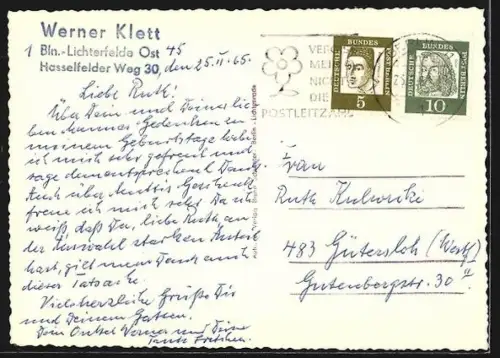 Werner Klett
1 Bln.-Lichterfelde Ost 45
Hasselfelder Weg 30, den 25.II.65.
Liebe Ruth!
Über Dein und Deines lie-
ben Mannes Gedenken an
meinem Geburtstage habe
ich mich sehr gefreut und
sage dementsprechend Dank.
Auch über Muttis Geschenk
freue ich mich sehr. Da ich
weiß, daß Du, liebe Ruth, an
der Auswahl starken Anteil
hast, gilt mein Dank auch
dieser Tatsache.
Viele herzliche Grüße Dir
und Deinem Gatten.
Dein Onkel Werner und Deine
Tante
VERGISS
MEIN
NICHT
DIE
POSTLEITZAHL
DEUTSCHE BUNDESPOST BERLIN
5
DEUTSCHE BUNDESPOST BERLIN
10
Frau
Ruth
483 Gütersloh (Westf)
Gutenbergstr. 30a